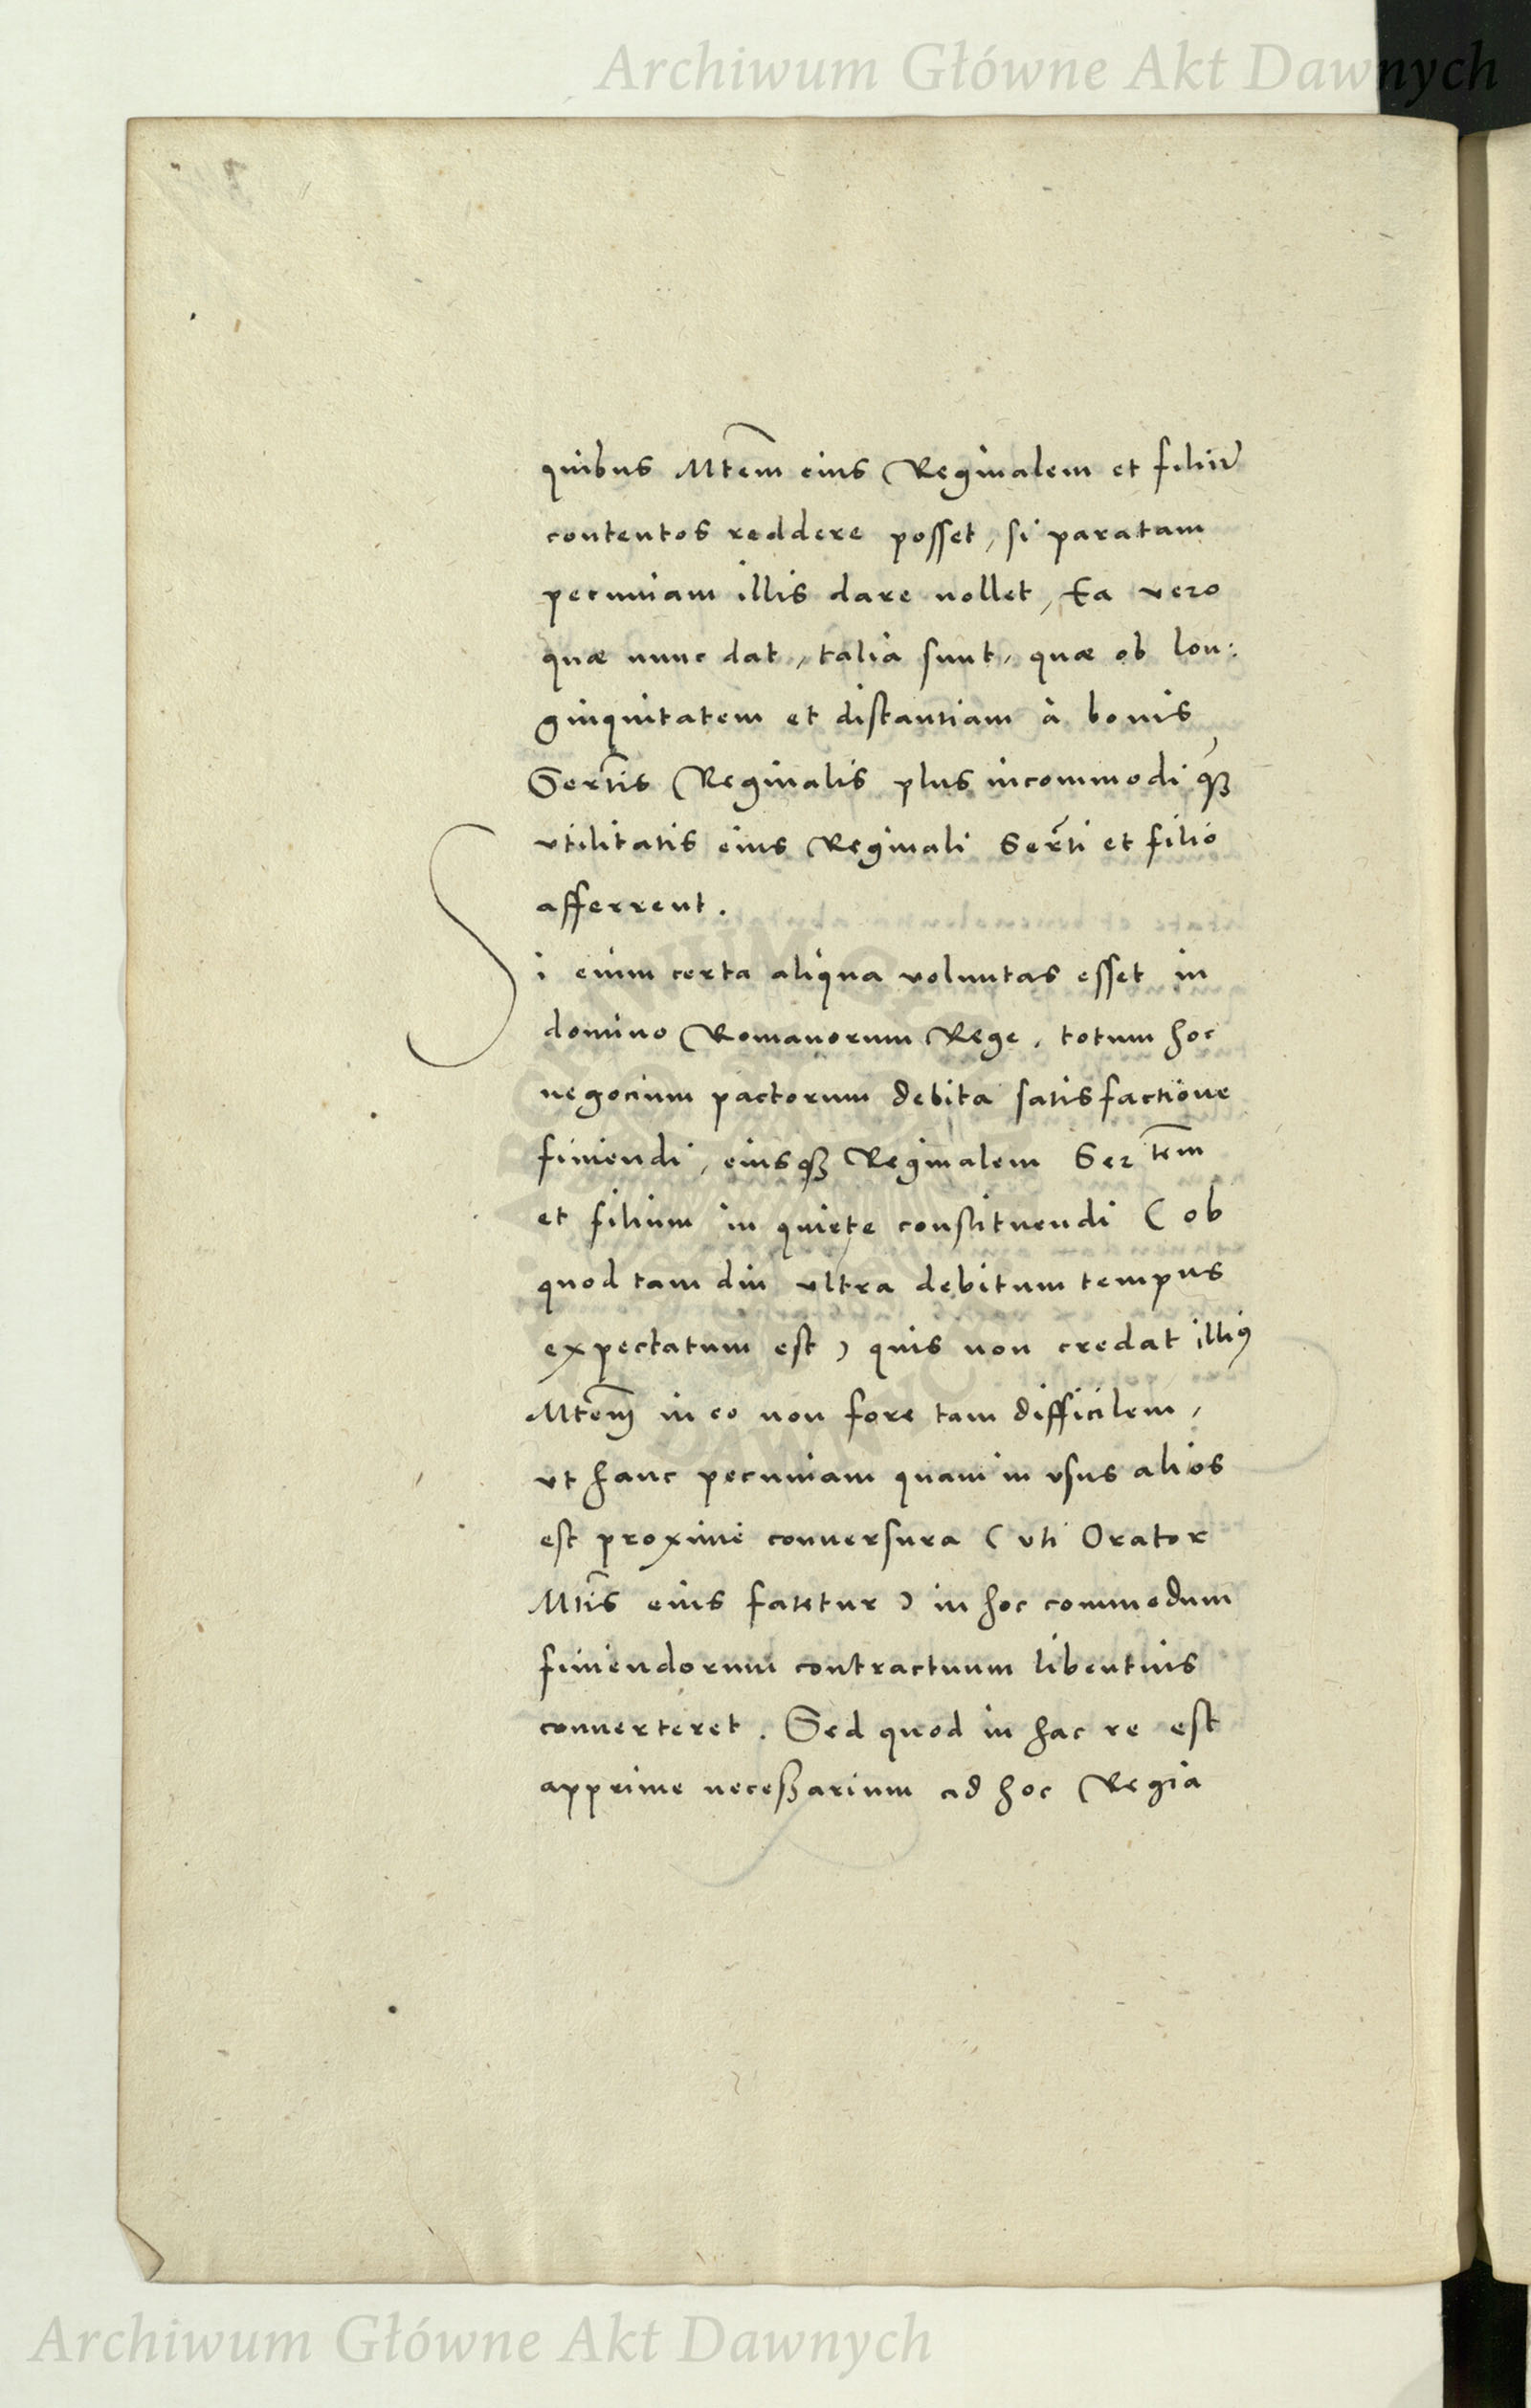 Archiwum Główne Akt Dawnych
quibus Mtem eius Reginalem et filiū
contentos reddere posset, si paratam
pecuniam illis dare nollet, Ea vero
quæ nunc dat, talia sunt, quæ ob lon:
ginquitatem et distantiam à bonis
Sertis Reginalis plus incommodi qꝫ
vtilitatis eius Reginali Serti et filio
afferrent.
Si enim certa aliqua voluntas esset in
domino Romanorum Rege, totum hoc
negocium pactorum debita satisfactione
finiendi, eiusqꝫ Reginalem Sertem
et filium in quiete constituendi (ob
quod tam diu vltra debitum tempus
expectatum est) quis non credat illiꝰ
Mtem in eo non fore tam difficilem,
vt hanc pecuniam quam in vsus alios
est proxime conuersura (vti Orator
Mtis eius fatetur) in hoc commodum
finiendorum contractuum libentius
conuerteret. Sed quod in hac re est
apprime necessarium ad hoc Regia
Archiwum Główne Akt Dawnych